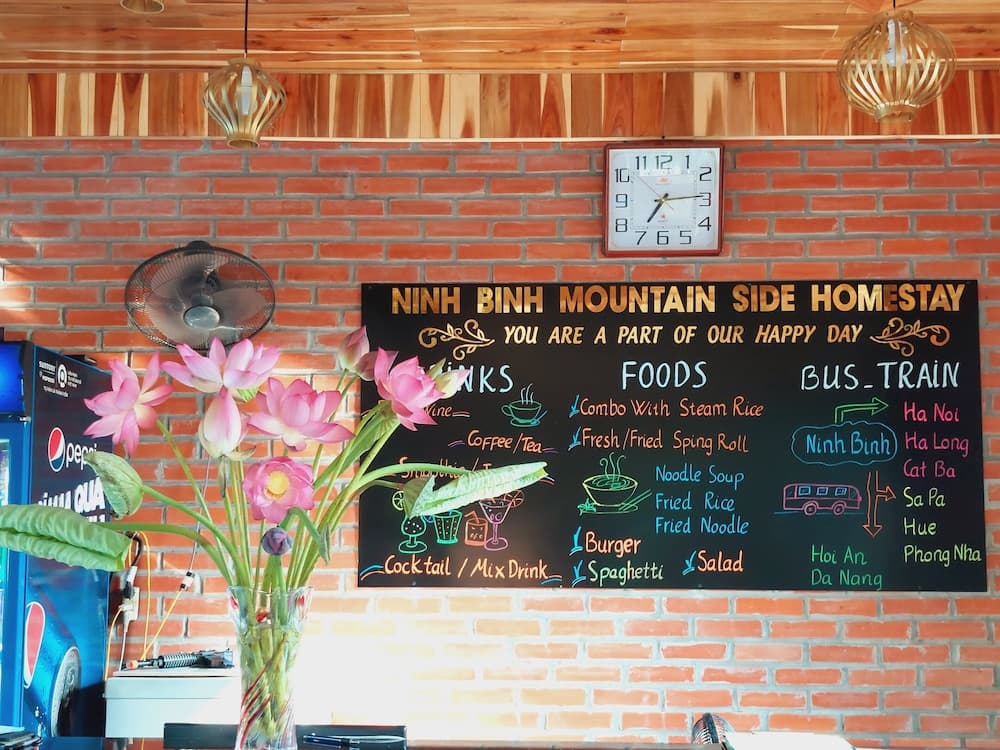 NINH BINH MOUNTAIN SIDE HOMESTAY
YOU ARE A PART OF OUR HAPPY DAY
FOODS
BUS_TRAIN
Coffee/Tea
Cocktail / Mix Drink
Combo With Steam Rice
Fresh/Fried Sping Roll
Noodle Soup
Fried Rice
Fried Noodle
Burger
Spaghetti
Salad
Ninh Binh
Ha Noi
Ha Long
Cat Ba
Sa Pa
Hue
Phong Nha
Hoi An
Da Nang
11 12 1
10 2
9 3
8 4
7 6 5
pepsi
QUA